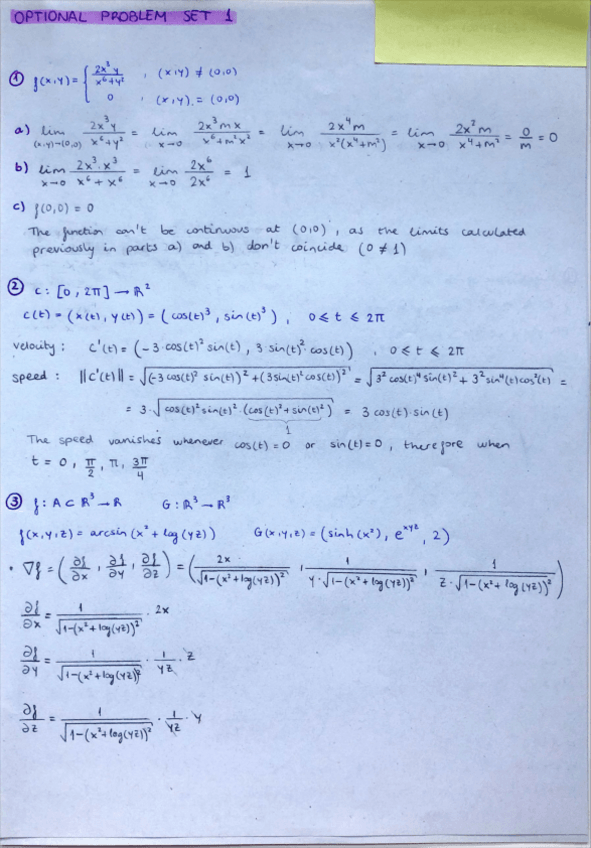 OPTIONAL PROBLEM SET 1
① f(x,y) = { 2x³y / x⁶+y² , (x,y) ≠ (0,0)
0 , (x,y) = (0,0)
a) lim (x,y)→(0,0) 2x³y / x⁶+y² = lim x→0 2x³mx / x⁶+m²x² = lim x→0 2x⁴m / x²(x⁴+m²) = lim x→0 2x²m / x⁴+m² = 0/m = 0
b) lim x→0 2x³·x³ / x⁶+x⁶ = lim x→0 2x⁶ / 2x⁶ = 1
c) f(0,0) = 0
The function can't be continuous at (0,0), as the limits calculated
previously in parts a) and b) don't coincide (0 ≠ 1)
② c: [0, 2π] → ℝ²
c(t) = (x(t), y(t)) = (cos(t)³, sin(t)³), 0 ≤ t ≤ 2π
velocity: c'(t) = (-3·cos(t)² sin(t), 3 sin(t)²·cos(t)), 0 ≤ t ≤ 2π
speed: ||c'(t)|| = √((-3 cos(t)² sin(t))² + (3 sin(t)² cos(t))²) = √(3² cos(t)⁴ sin(t)² + 3² sin⁴(t) cos²(t)) =
= 3·√(cos(t)² sin(t)²·(cos(t)² + sin(t)²)) = 3 cos(t)·sin(t)
1
The speed vanishes whenever cos(t) = 0 or sin(t) = 0, therefore when
t = 0, π/2, π, 3π/4
③ f: A ⊂ ℝ³ → ℝ G: ℝ³ → ℝ³
f(x,y,z) = arcsin(x² + log(yz)) G(x,y,z) = (sinh(x²), e^xyz, 2)
· ∇f = (∂f/∂x, ∂f/∂y, ∂f/∂z) = (2x / √(1-(x²+log(yz))²), 1 / y·√(1-(x²+log(yz))²), 1 / z·√(1-(x²+log(yz))²))
∂f/∂x = 1 / √(1-(x²+log(yz))²) · 2x
∂f/∂y = 1 / √(1-(x²+log(yz))²) · 1/yz · z
∂f/∂z = 1 / √(1-(x²+log(yz))²) · 1/yz · y